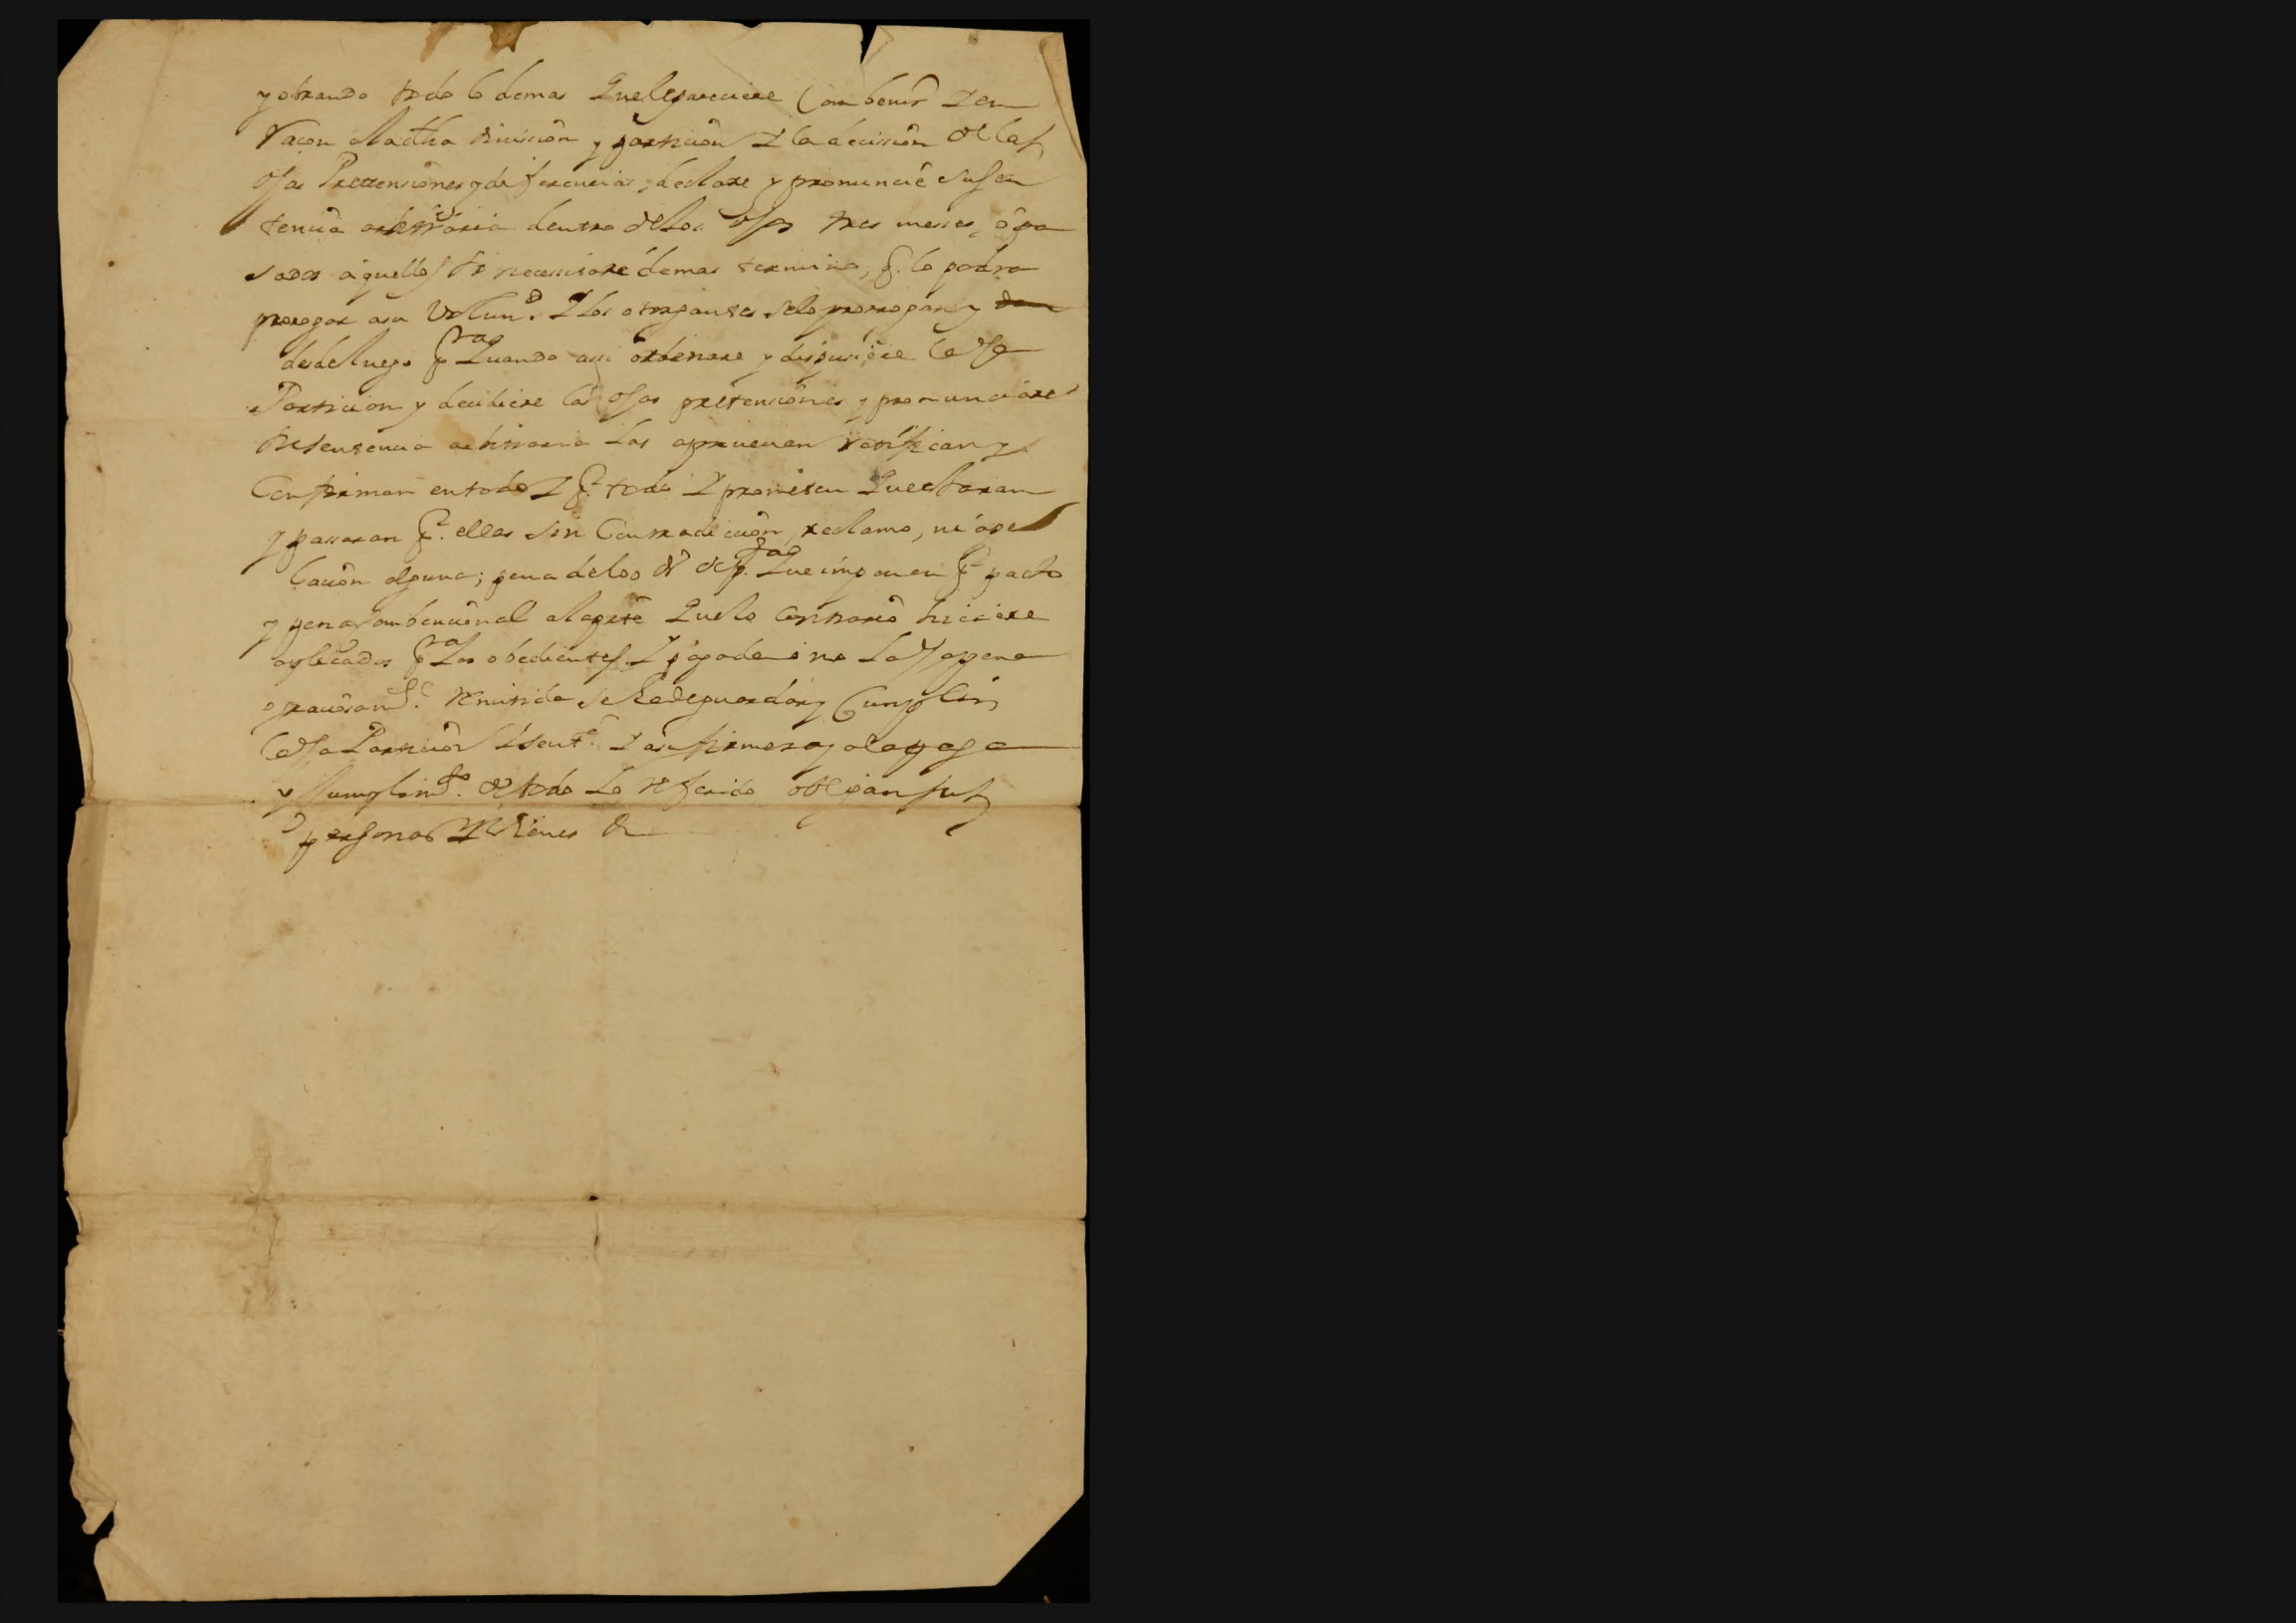 y obrando todo lo demas Que le pareciere Combenir Y en
Raçon a la dha division y particion Y la decission de las
dhas Pretensiones y diferencias, declare y pronuncie su sen
tencia arbitraria dentro de los dhos tres messes, ô pa
sados aquellos si necessitare de mas termino, q.e lo podra
prorogar a su Volun.d Y los otorgantes se lo prorrogan y
desde luego p.ra Quando assi ordenare y dispusiere la dha
Particion y decidiere las dhas pretensiones y pronunciare
su sentencia arbitraria las apruevan ratifican y
Confirman en todo Y p.r todo Y prometen Que estaran
y passaran p.r ellas sin Contradicion, reclamo, ni ape
lacion alguna; pena de los Que imponen p.r pacto
y pena Combencional a la parte Que lo contrario hiciere
aplicados p.ra Los obedientes Y pagada o no La dha pena
o graciosam.te remitida se ha de guardar y Cumplir
la dha Particion Y Sent.a Y a su firmeza y a la paga
y Cumplim.to de todo Lo referido obligan sus
personas Y Vienes &